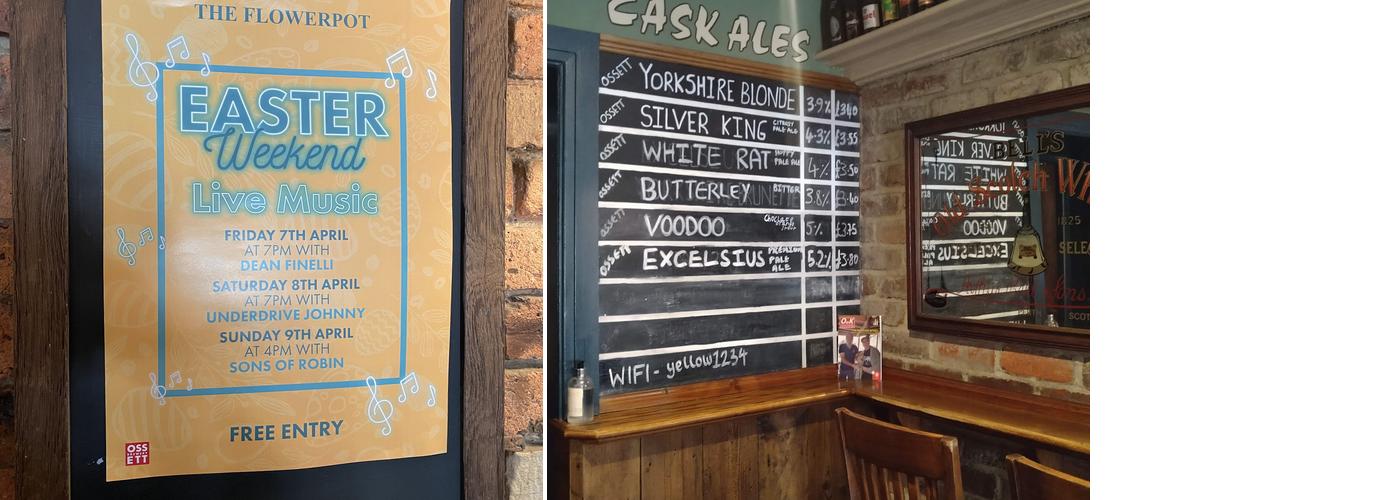 THE FLOWERPOT
EASTER
Weekend
Live Music
FRIDAY 7TH APRIL
AT 7PM WITH
DEAN FINELLI
SATURDAY 8TH APRIL
AT 7PM WITH
UNDERDRIVE JOHNNY
SUNDAY 9TH APRIL
AT 4PM WITH
SONS OF ROBIN
FREE ENTRY
OSS
ETT
CASK ALES
OSSETT YORKSHIRE BLONDE 3.9% £3.40
OSSETT SILVER KING CITRUSY PALE ALE 4.3% £3.55
OSSETT WHITE RAT HOPPY PALE ALE 4% £3.50
OSSETT BUTTERLEY BITTER 3.8% £3.40
OSSETT VOODOO 5% £3.75
OSSETT EXCELSIUS PREMIUM PALE ALE 5.2% £3.80
WIFI - yellow1234
BELL'S
Old Scotch
1825
SCOT